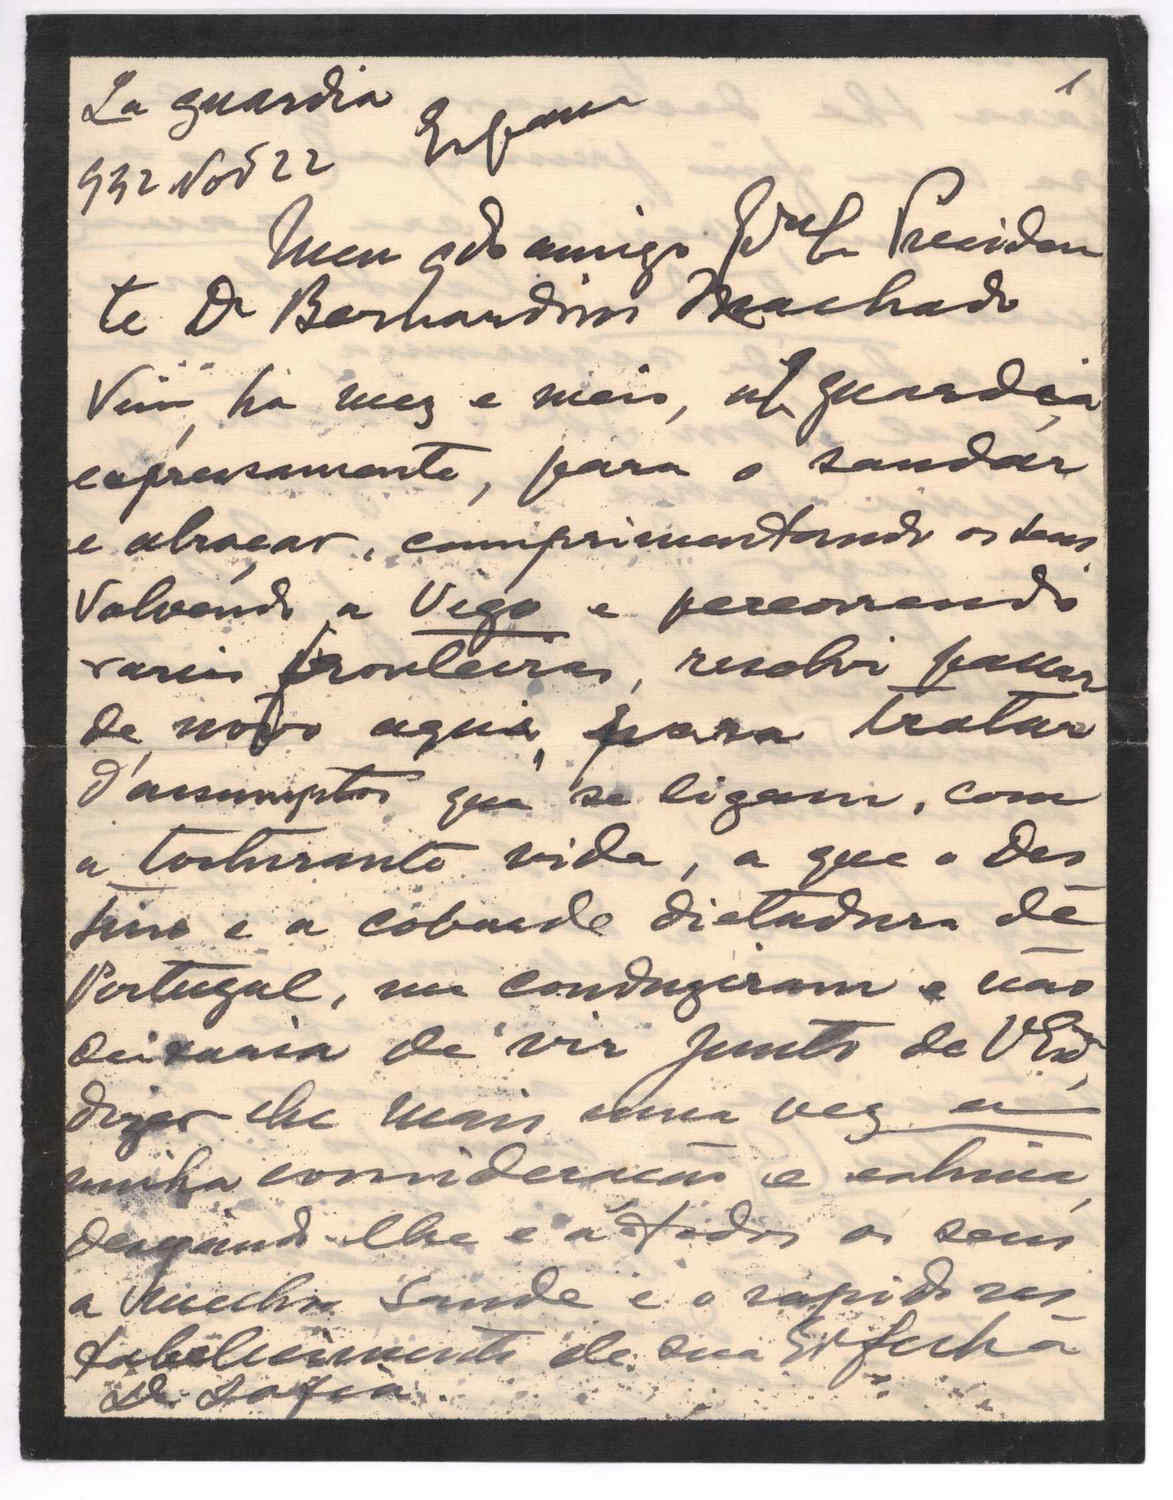 1
La guardia
Espana
932 Nov 22
Meu qdo amigo Exmo Sr Presiden
te Dr Bernardino Machado
Vim, ha mez e meio, a La guardia
expressamente, para o saudar
e abraçar, comprimentando os seus
Volvendo a Vigo e percorrendo
varias fronteiras, resolvi passar
de novo aqui, para tratar
d'assumptos que se ligam, com
a torturante vida, a que o Des
tino e a cobarde dictadura de
Portugal, me conduziram e não
deixaria de vir junto de V Exa,
dizer lhe mais uma vez a
minha consideração e estima,
desejando-lhe e a todos os seus
a melhor saude e o rapido res
tabelecimento de sua Exa filha
D. Sofia